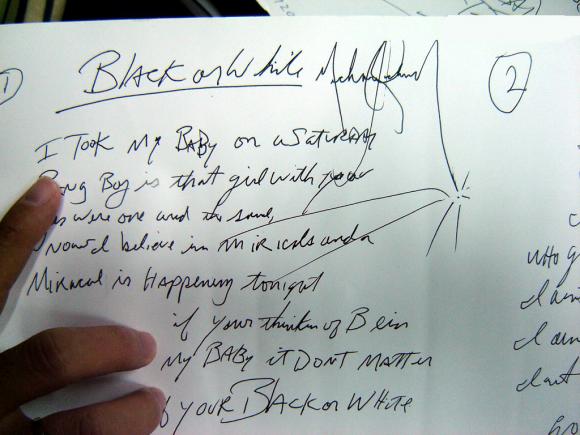 1 Black or White Michael Jackson 2
I Took My BABY on a Saturday
Bang Boy is that girl with you
were one and the same,
now I believe in MiRicals and a
MiRacal is Happening tonight
if your thinkin of Bein
My BABY it DONT MatteR
if YOUR Black or White
who g